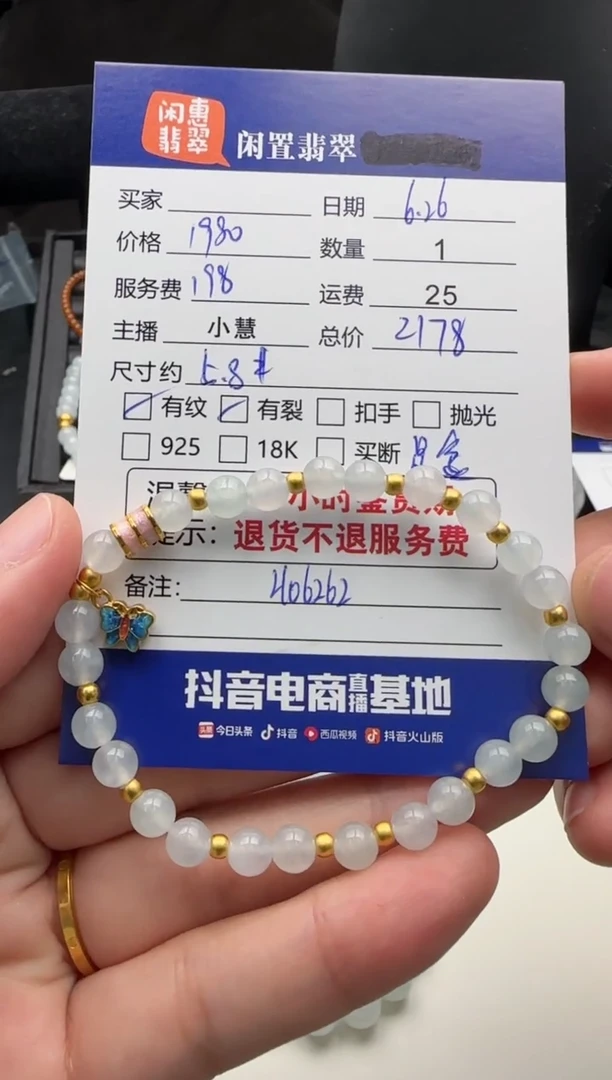 闲惠
翡翠
闲置翡翠
买家 日期 6.26
价格 1980 数量 1
服务费 198 运费 25
主播 小慧 总价 2178
尺寸约 5.8
有纹 有裂 扣手 抛光
925 18K 买断
小的
示：退货不退服务费
备注：H06262
抖音电商直播基地
头条 今日头条 抖音 西瓜视频 抖音火山版